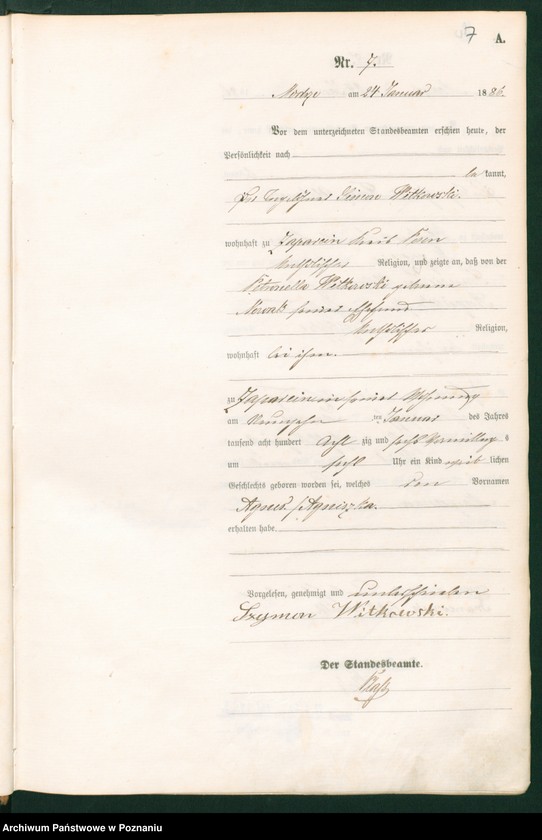 7 A.
Nr. 7.
am 24 Januar 1886.
Vor dem unterzeichneten Standesbeamten erschien heute, der
Persönlichkeit nach
kannt,
der Simon Witkowski.
wohnhaft zu Kreis Posen
katholischer Religion, und zeigte an, daß von der
Petronella Witkowski geborene
Nowak seiner Ehefrau
katholischer Religion,
wohnhaft bei ihm.
zu in seiner Wohnung
am neunzehn ten Januar des Jahres
tausend acht hundert acht zig und sechs Vormittags
um sechs Uhr ein Kind weib lichen
Geschlechts geboren worden sei, welches den Vornamen
Agnes /Agniszka.
erhalten habe.
Vorgelesen, genehmigt und unterschrieben
Szymon Witkowski.
Der Standesbeamte.
Archiwum Państwowe w Poznaniu